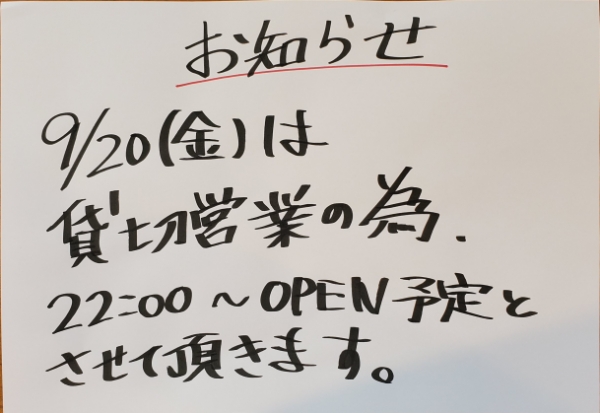 お知らせ
9/20(金)は
貸切営業の為.
22:00～OPEN予定と
させて頂きます。